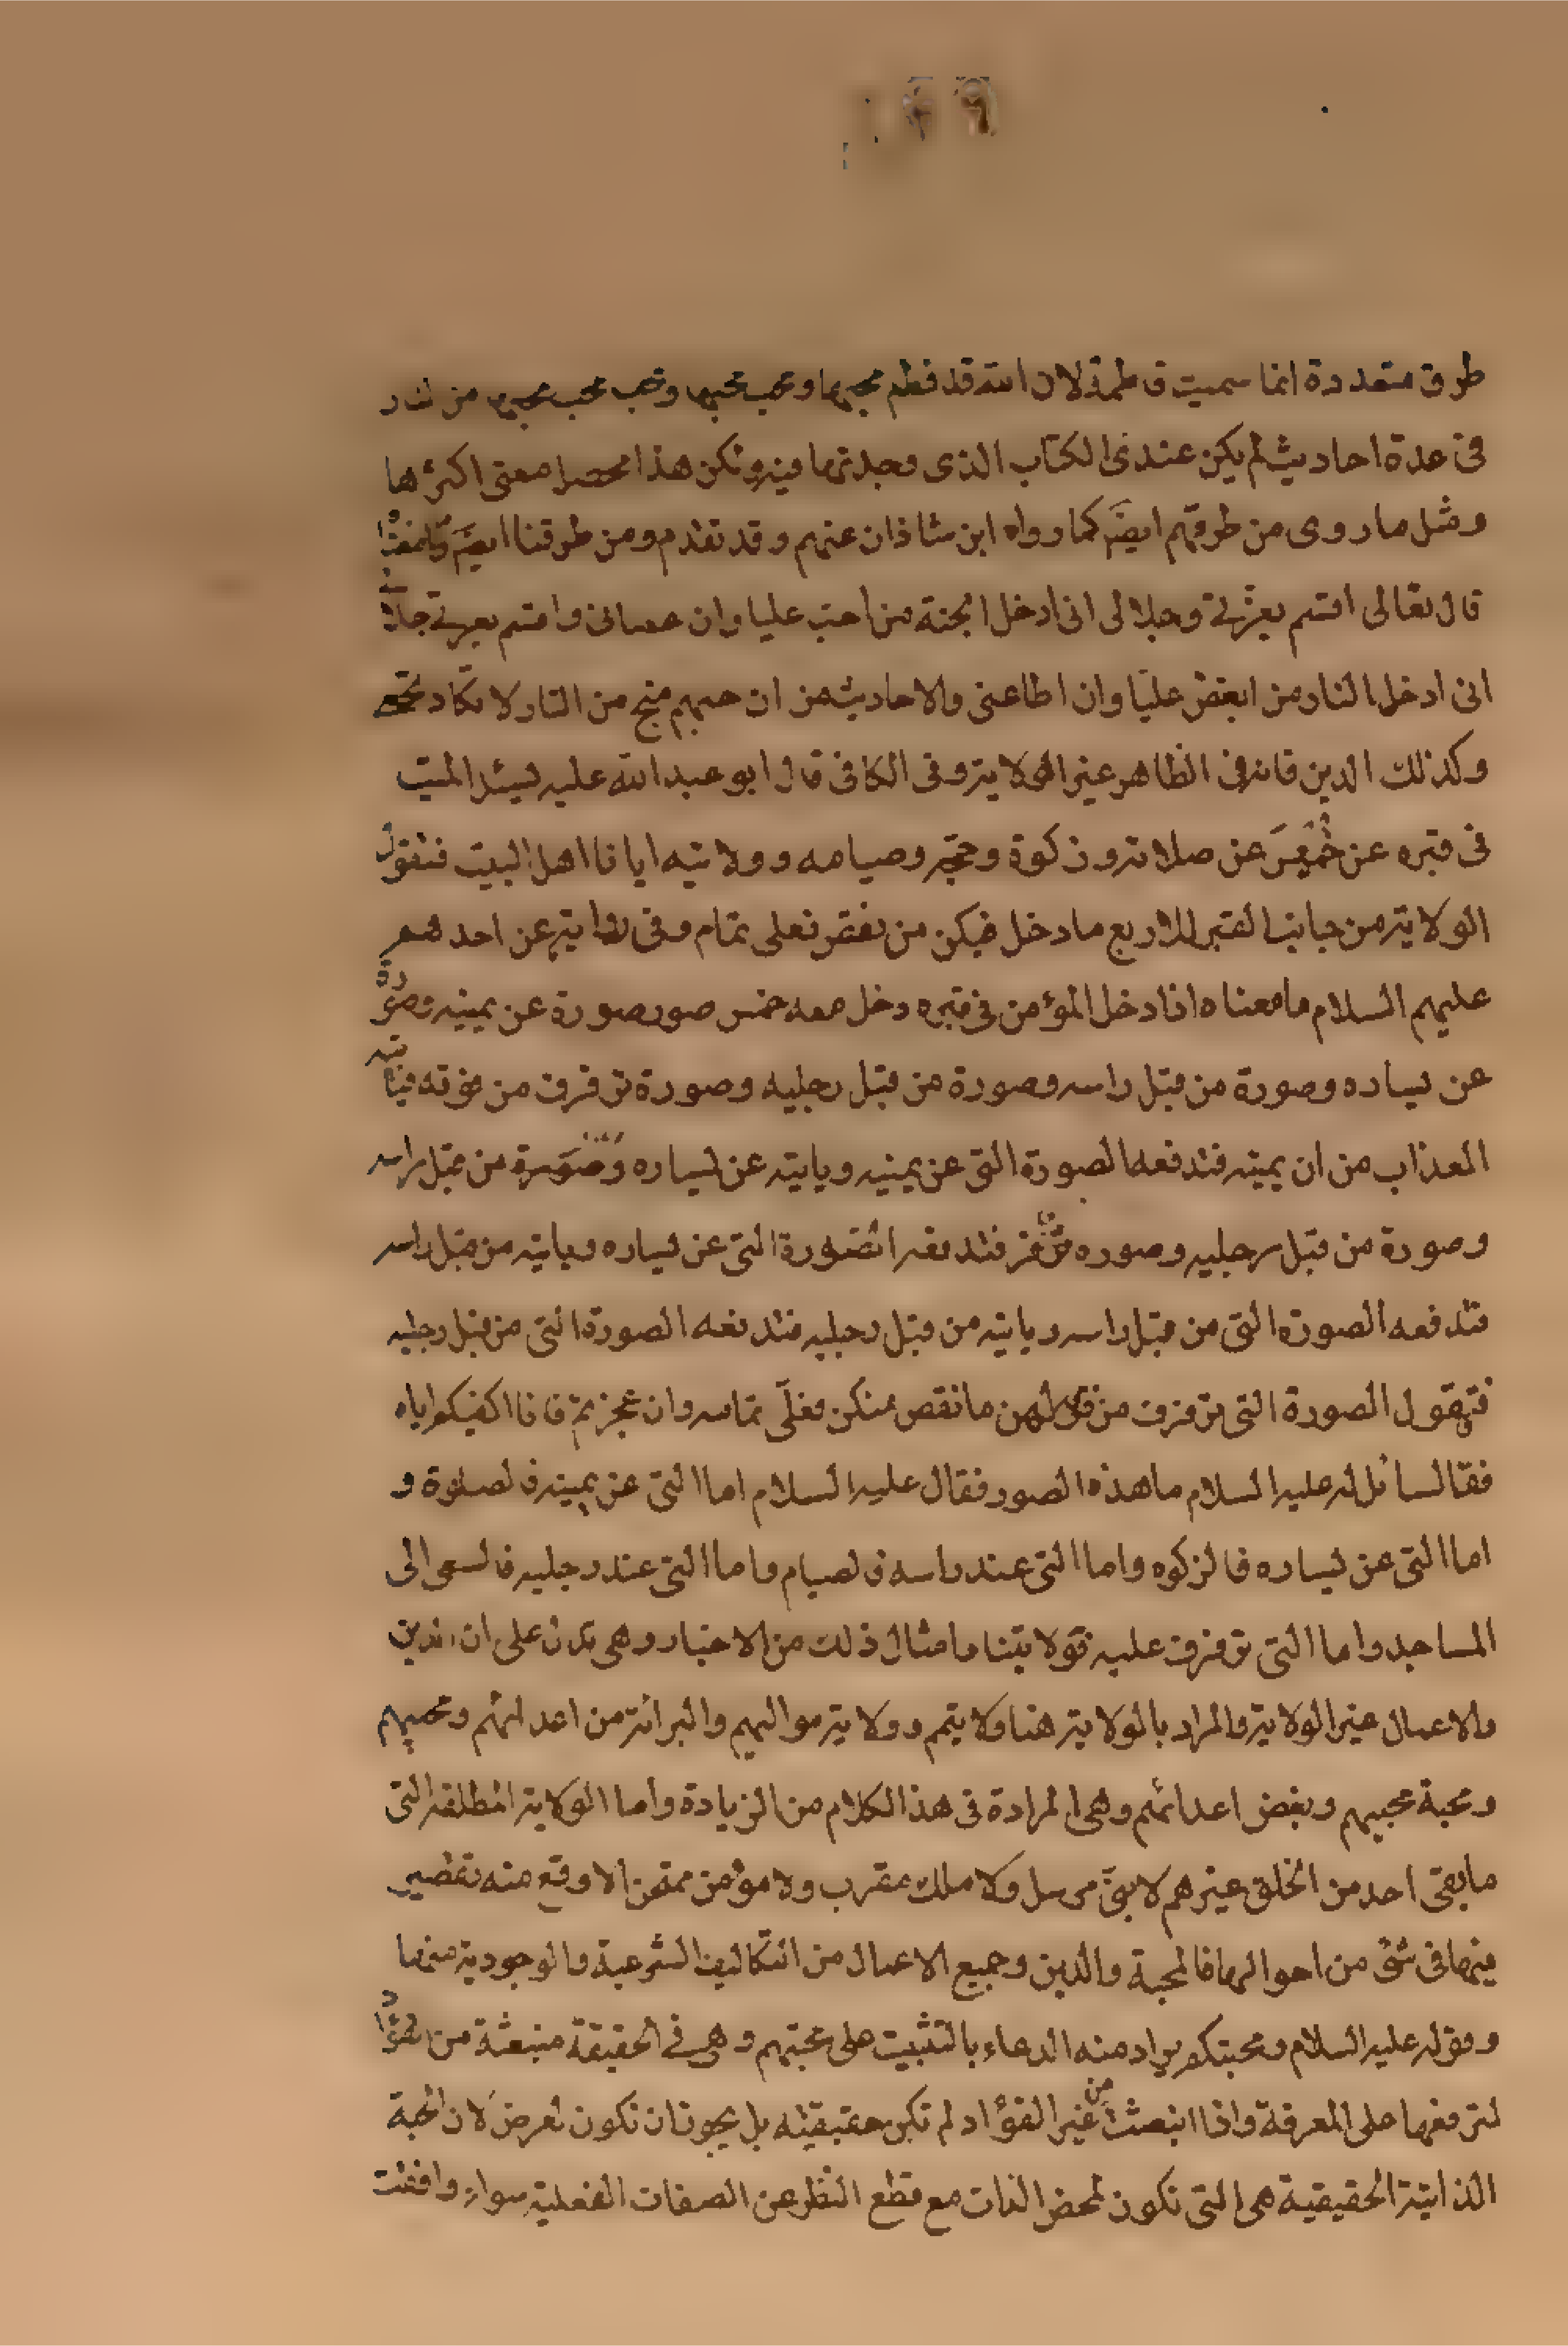 طرق متعددة انما سميت فاطمة لان الله قد فطم محبيها ومحب محبيها ومحب محب محبيها من النار
فى عدة احاديث لم يكن عندى الكتاب الذى وجدتها فيه ولكن هذا محصل معنى اكثرها
ومثل ما روى من طرقهم ايضًا كما رواه ابن شاذان عنهم وقد تقدم ومن طرقنا ايضًا
قال تعالى اقسم بعزتى وجلالى انى ادخل الجنة من احب عليا وان عصانى واقسم بعزتى وجلالى
انى ادخل النار من ابغض عليًا وان اطاعنى والاحاديث من ان حبهم منج من النار لا تكاد تحصى
وكذلك الدين فانه فى الظاهر غير الولاية وفى الكافى قال ابو عبد الله عليه يسئل الميت
فى قبره عن خمس عن صلاته وزكوة وحجه وصيامه وولايته ايانا اهل البيت فتقول
الولاية من جانب القبر للاربع ما دخل فيكن من نقص فعلى تمام وفى رواية عن احدهم
عليهم السلام ما معناه اذا دخل المؤمن فى قبره دخل معه خمس صور صورة عن يمينه وصورة
عن يساره وصورة من قبل راسه وصورة من قبل رجليه وصورة ترفرف من فوقه فياتيه
العذاب من ان يمينه فتدفعه الصورة التى عن يمينه وياتيه عن يساره وصورة من قبل راسه
وصورة من قبل رجليه وصوره فتدفعه الصورة التى عن يساره وياتيه من قبل راسه
فتدفعه الصورة التى من قبل راسه وياتيه من قبل رجليه فتدفعه الصورة التى من قبل رجليه
فتقول الصورة التى ترفرف من فوق لهن ما نقص منكن فعلّى تمامه وان عجزتم فانا اكفيكم اياه
فقال السائل له عليه السلام ما هذه الصور فقال عليه السلام اما التى عن يمينه فالصلوة و
اما التى عن يساره فالزكوه واما التى عند راسه فالصيام واما التى عند رجليه فالسعى الى
المساجد واما التى ترفرف عليه فولايتنا وامثال ذلك من الاخبار وهى تدل على ان الدين
والاعمال غير الولاية والمراد بالولاية هنا ولايتهم وولاية مواليهم والبرائة من اعدائهم ومحبيهم
ومحبة محبيهم وبغض اعدائهم وهى المرادة فى هذا الكلام من الزيادة واما الولاية المطلقة التى
ما بقى احد من الخلق غيرهم لا نبىّ مرسل ولا ملك مقرب ولا مؤمن ممتحن الا وقع منه تقصير
فيها فى شئ من احوالها فالمحبة والدين وجميع الاعمال من التكاليف الشرعية والوجودية منها
وقوله عليه السلام ومحبتكم يراد منه الدعاء بالتثبيت على محبتهم وهى فى الحقيقة منبعثة من الفؤاد
لترفعها على المعرفة واذا انبعثت من غير الفؤاد لم تكن حقيقيته بل يجوز ان تكون لعرض لان المحبة
الذاتية الحقيقية هى التى تكون لمحض الذات مع قطع النظر عن الصفات الفعلية سواء وافقت